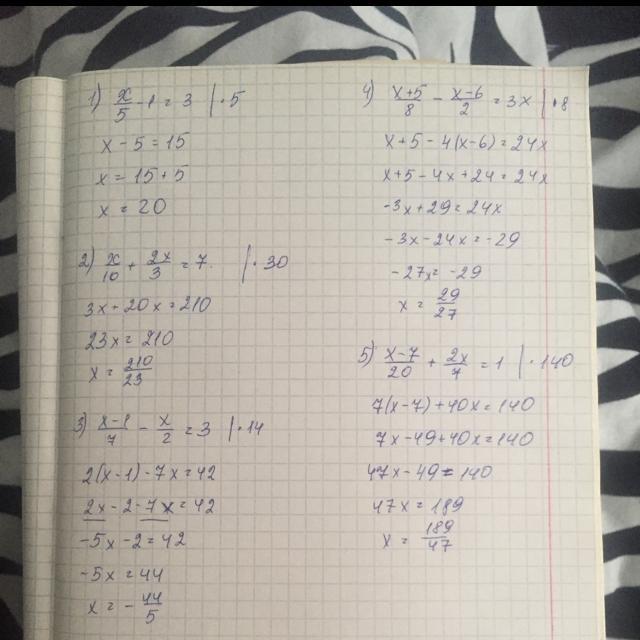 1) x/5 - 1 = 3 | · 5
x - 5 = 15
x = 15 + 5
x = 20
2) x/10 + 2x/3 = 7 | · 30
3x + 20x = 210
23x = 210
x = 210/23
3) x-1/7 - x/2 = 3 | · 14
2(x-1) - 7x = 42
2x - 2 - 7x = 42
-5x - 2 = 42
-5x = 44
x = - 44/5
4) x+5/8 - x-6/2 = 3x | · 8
x + 5 - 4(x-6) = 24x
x + 5 - 4x + 24 = 24x
-3x + 29 = 24x
-3x - 24x = -29
-27x = -29
x = 29/27
5) x-7/20 + 2x/7 = 1 | · 140
7(x-7) + 40x = 140
7x - 49 + 40x = 140
47x - 49 = 140
47x = 189
x = 189/47